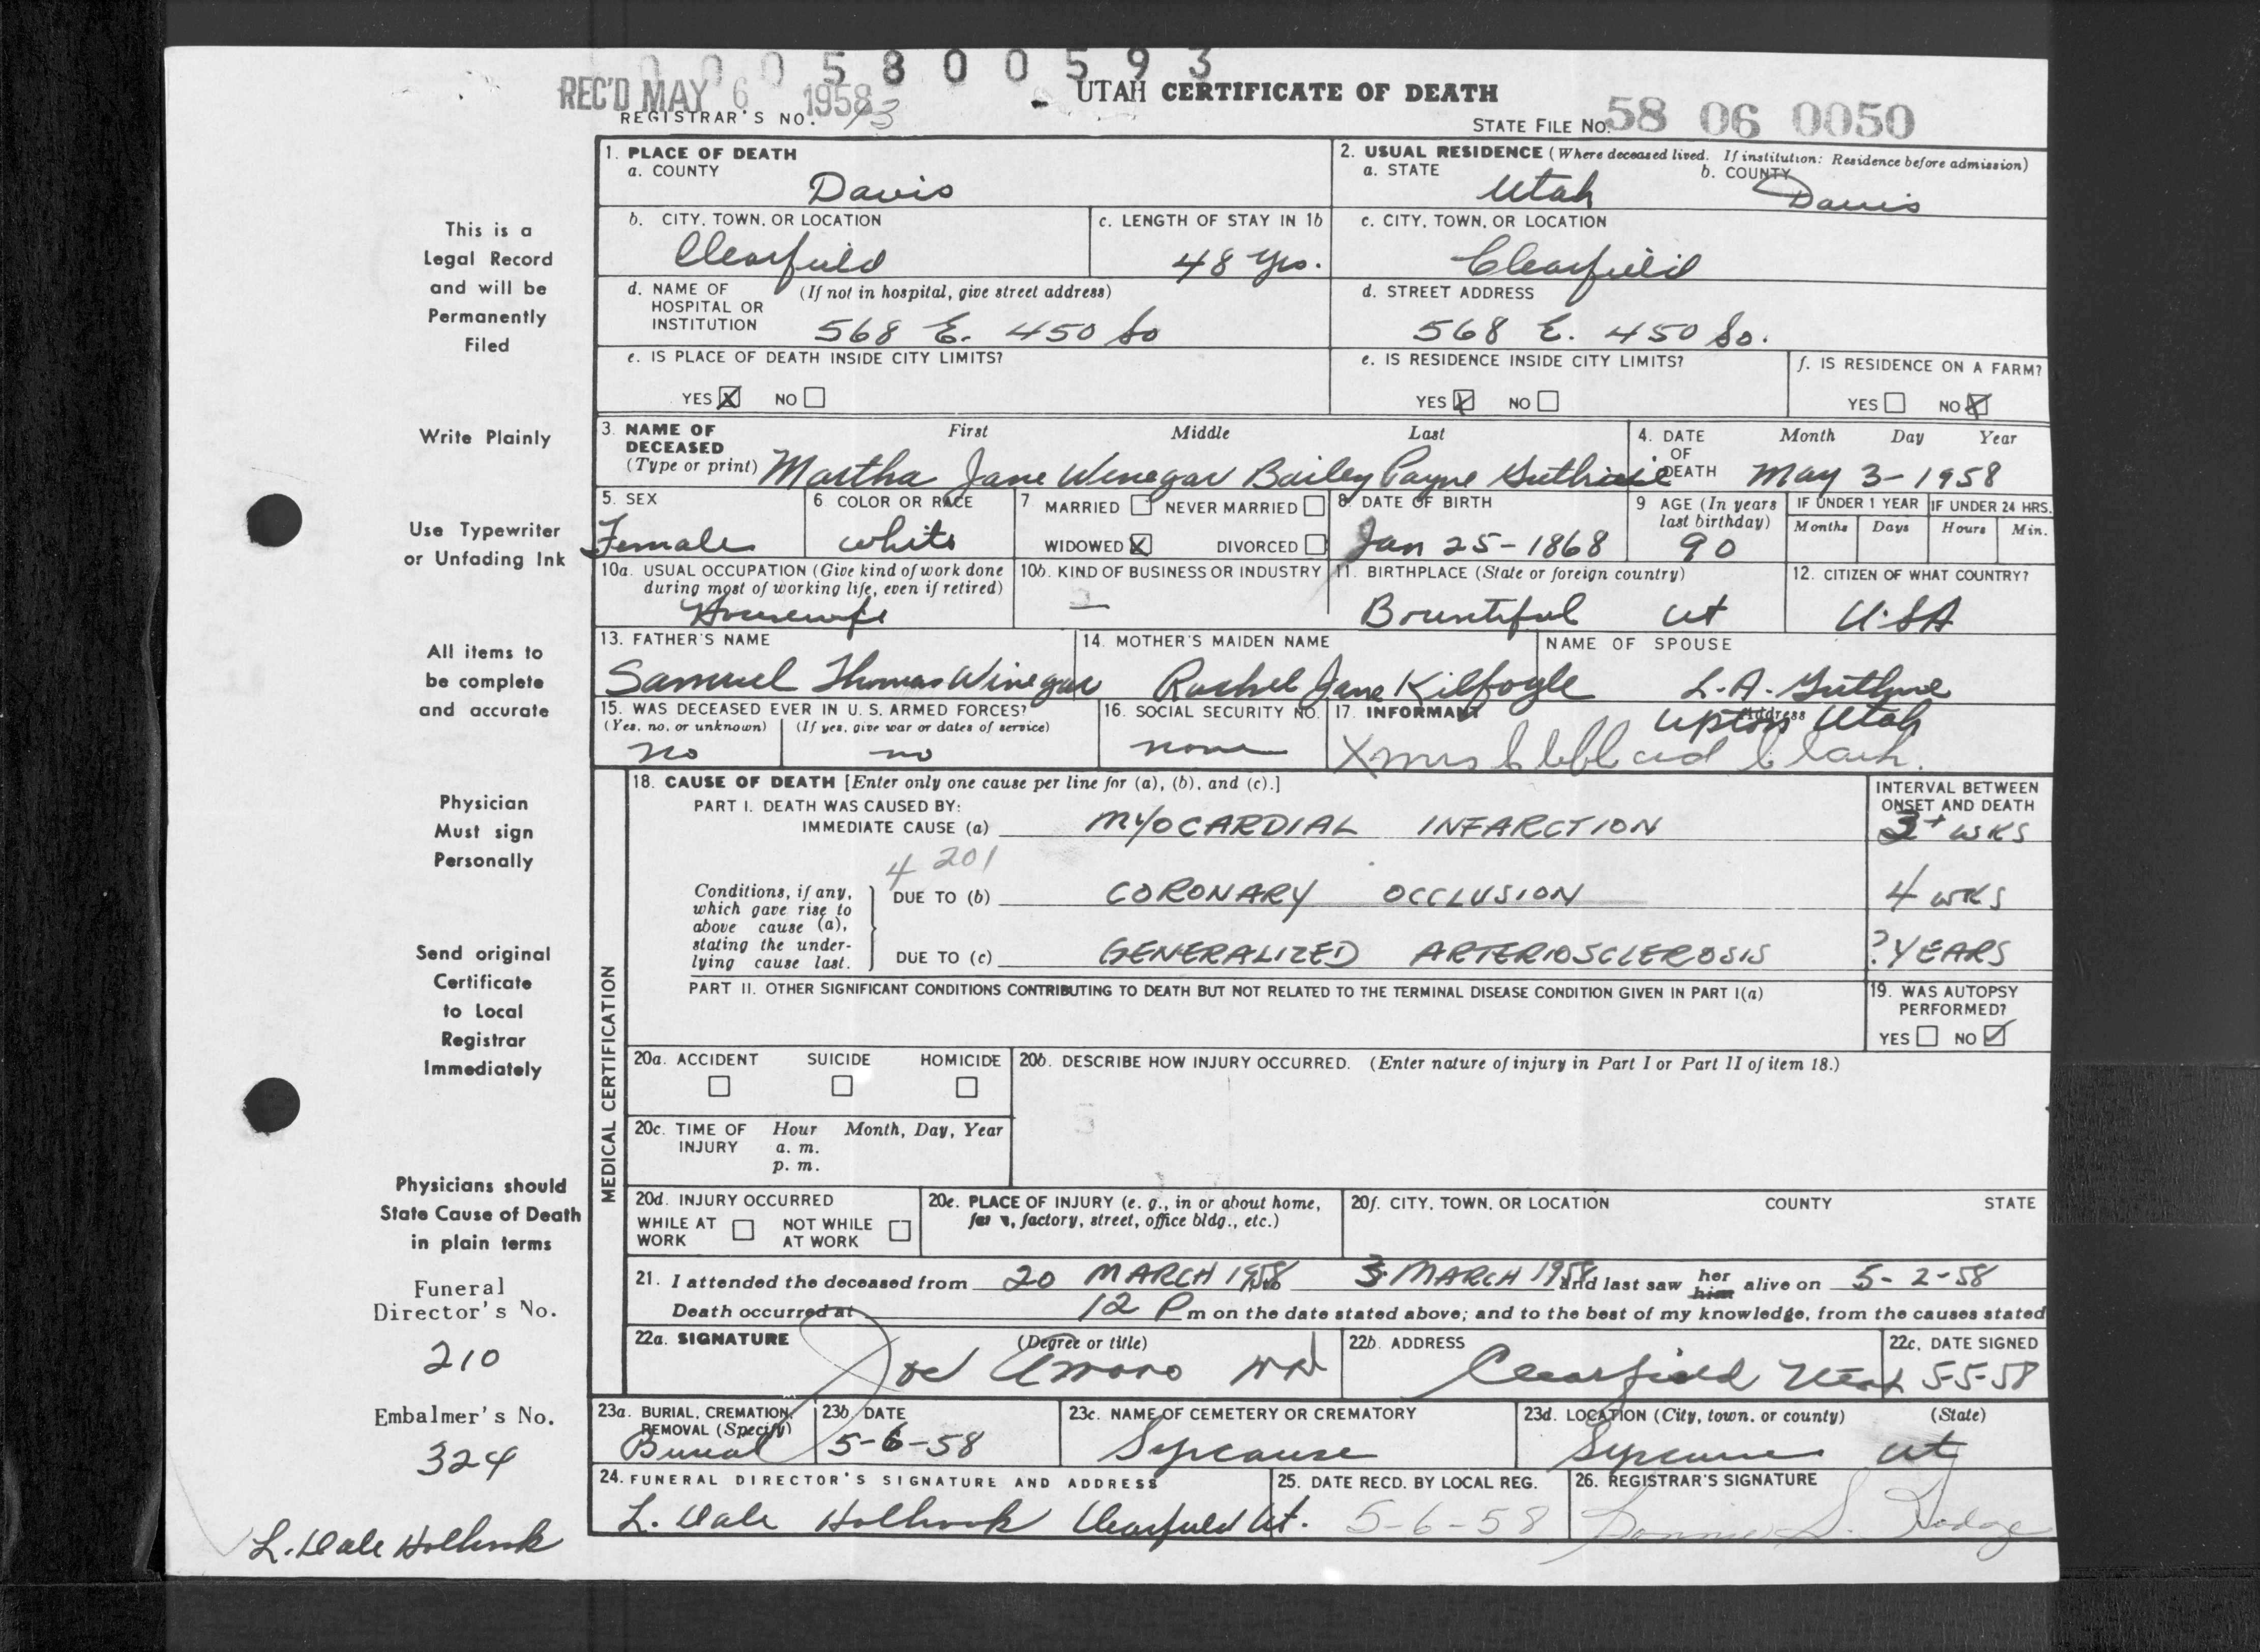 0 0 0 5 8 0 0 5 9 3
REC'D MAY 6 1958
UTAH CERTIFICATE OF DEATH
REGISTRAR'S NO. 13
STATE FILE NO. 58 06 0050
1. PLACE OF DEATH
a. COUNTY
Davis
2. USUAL RESIDENCE (Where deceased lived. If institution: Residence before admission)
a. STATE Utah b. COUNTY Davis
b. CITY, TOWN, OR LOCATION
Clearfield
c. LENGTH OF STAY IN 1b
48 Yrs.
c. CITY, TOWN, OR LOCATION
Clearfield
d. NAME OF HOSPITAL OR INSTITUTION (If not in hospital, give street address)
568 E. 450 So
d. STREET ADDRESS
568 E. 450 So.
e. IS PLACE OF DEATH INSIDE CITY LIMITS?
YES X NO
e. IS RESIDENCE INSIDE CITY LIMITS?
YES X NO
f. IS RESIDENCE ON A FARM?
YES NO X
3. NAME OF DECEASED (Type or print) First Middle Last
Martha Jane Winegar Bailey Payne Guthrie
4. DATE OF DEATH Month Day Year
May 3-1958
5. SEX
Female
6 COLOR OR RACE
white
7 MARRIED NEVER MARRIED
WIDOWED X DIVORCED
8. DATE OF BIRTH
Jan 25-1868
9 AGE (In years last birthday)
90
IF UNDER 1 YEAR
Months Days
IF UNDER 24 HRS.
Hours Min.
10a. USUAL OCCUPATION (Give kind of work done during most of working life, even if retired)
Housewife
10b. KIND OF BUSINESS OR INDUSTRY
—
11. BIRTHPLACE (State or foreign country)
Bountiful Ut
12. CITIZEN OF WHAT COUNTRY?
U.S.A
13. FATHER'S NAME
Samuel Thomas Winegar
14. MOTHER'S MAIDEN NAME
Rachel Jane Kilfoyle
NAME OF SPOUSE
L. A. Guthrie
15. WAS DECEASED EVER IN U. S. ARMED FORCES?
(Yes, no, or unknown) (If yes, give war or dates of service)
no no
16. SOCIAL SECURITY NO.
none
17. INFORMANT Address
Upton Utah
X Mrs
18. CAUSE OF DEATH [Enter only one cause per line for (a), (b), and (c).]
INTERVAL BETWEEN ONSET AND DEATH
PART I. DEATH WAS CAUSED BY:
IMMEDIATE CAUSE (a) MYOCARDIAL INFARCTION 3+ WKS
4 201
Conditions, if any, which gave rise to above cause (a), stating the underlying cause last.
DUE TO (b) CORONARY OCCLUSION 4 WKS
DUE TO (c) GENERALIZED ARTERIOSCLEROSIS ? YEARS
PART II. OTHER SIGNIFICANT CONDITIONS CONTRIBUTING TO DEATH BUT NOT RELATED TO THE TERMINAL DISEASE CONDITION GIVEN IN PART I(a)
19. WAS AUTOPSY PERFORMED?
YES NO ✓
MEDICAL CERTIFICATION
20a. ACCIDENT SUICIDE HOMICIDE
20b. DESCRIBE HOW INJURY OCCURRED. (Enter nature of injury in Part I or Part II of item 18.)
20c. TIME OF INJURY Hour Month, Day, Year
a. m.
p. m.
20d. INJURY OCCURRED
WHILE AT WORK NOT WHILE AT WORK
20e. PLACE OF INJURY (e. g., in or about home, farm, factory, street, office bldg., etc.)
20f. CITY, TOWN, OR LOCATION COUNTY STATE
21. I attended the deceased from 20 MARCH 1958 to 3 MARCH 1958 and last saw her him alive on 5-2-58
Death occurred at 12 P m on the date stated above; and to the best of my knowledge, from the causes stated
22a. SIGNATURE (Degree or title)
Joe Amano MD
22b. ADDRESS
Clearfield Utah
22c. DATE SIGNED
5-5-58
23a. BURIAL, CREMATION, REMOVAL (Specify)
Burial
23b. DATE
5-6-58
23c. NAME OF CEMETERY OR CREMATORY
Syracuse
23d. LOCATION (City, town, or county) (State)
Syracuse Ut
24. FUNERAL DIRECTOR'S SIGNATURE AND ADDRESS
L. Dale Holbrook Clearfield Ut.
25. DATE RECD. BY LOCAL REG.
5-6-58
26. REGISTRAR'S SIGNATURE
Bonnie S. Hodge
This is a
Legal Record
and will be
Permanently
Filed
Write Plainly
Use Typewriter
or Unfading Ink
All items to
be complete
and accurate
Physician
Must sign
Personally
Send original
Certificate
to Local
Registrar
Immediately
Physicians should
State Cause of Death
in plain terms
Funeral
Director's No.
210
Embalmer's No.
324
L. Dale Holbrook